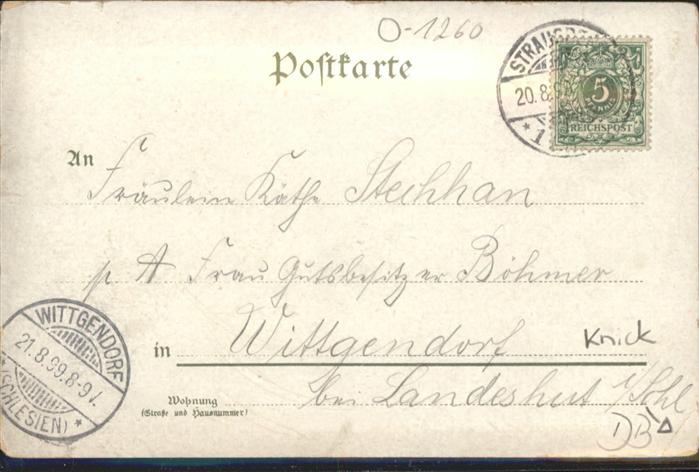 O-1260
Postkarte
STRAUSB
20.8.99
* 1
5
REICHSPOST
An
Fräulein Käthe Stechhan
p A Frau Gutsbesitzer Böhmer
in Wittgendorf
Knick
bei Landeshut i/Schl
Wohnung
(Straße und Hausnummer)
DB
WITTGENDORF
21.8.99.8-9V.
(SCHLESIEN) *